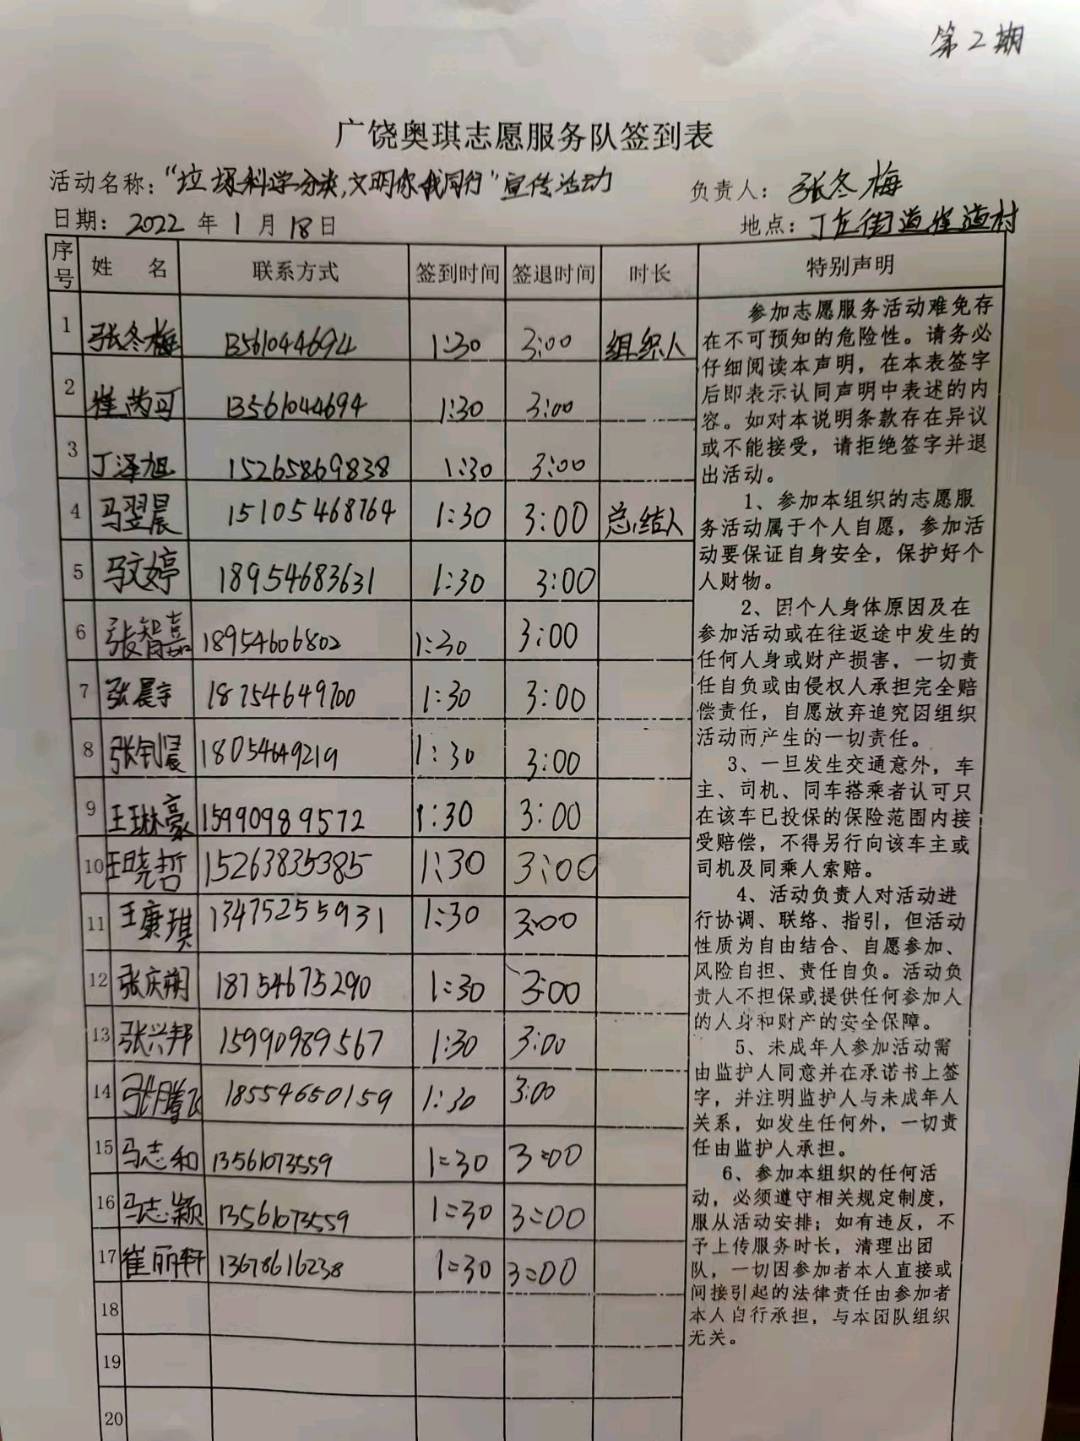 第2期
广饶奥琪志愿服务队签到表
活动名称："垃圾科学分类,文明你我同行"宣传活动 负责人：张冬梅
日期：2022年1月18日 地点：丁庄街道崔道村
序号 姓名 联系方式 签到时间 签退时间 时长 特别声明
1 张冬梅 13561044694 1:30 3:00 组织人
2 崔芮可 13561044694 1:30 3:00
3 丁泽旭 15265869838 1:30 3:00
4 马翌晨 15105468764 1:30 3:00 总结人
5 马文婷 18954683631 1:30 3:00
6 张智嘉 18954606802 1:30 3:00
7 张晨宇 18754649700 1:30 3:00
8 张钊晨 18054649219 1:30 3:00
9 王琳豪 15990989572 1:30 3:00
10 王晓哲 15263835385 1:30 3:00
11 王康琪 13475255931 1:30 3:00
12 张庆朔 18754675290 1:30 3:00
13 张兴邦 15990989567 1:30 3:00
14 张腾飞 18554650159 1:30 3:00
15 马志和 13561073559 1=30 3=00
16 马志颖 13561073559 1=30 3=00
17 崔丽轩 13678616238 1=30 3=00
18
19
20
参加志愿服务活动难免存
在不可预知的危险性。请务必
仔细阅读本声明，在本表签字
后即表示认同声明中表述的内
容。如对本说明条款存在异议
或不能接受，请拒绝签字并退
出活动。
1、参加本组织的志愿服
务活动属于个人自愿，参加活
动要保证自身安全，保护好个
人财物。
2、因个人身体原因及在
参加活动或在往返途中发生的
任何人身或财产损害，一切责
任自负或由侵权人承担完全赔
偿责任，自愿放弃追究因组织
活动而产生的一切责任。
3、一旦发生交通意外，车
主、司机、同车搭乘者认可只
在该车已投保的保险范围内接
受赔偿，不得另行向该车主或
司机及同乘人索赔。
4、活动负责人对活动进
行协调、联络、指引，但活动
性质为自由结合、自愿参加、
风险自担、责任自负。活动负
责人不担保或提供任何参加人
的人身和财产的安全保障。
5、未成年人参加活动需
由监护人同意并在承诺书上签
字，并注明监护人与未成年人
关系，如发生任何外，一切责
任由监护人承担。
6、参加本组织的任何活
动，必须遵守相关规定制度，
服从活动安排；如有违反，不
予上传服务时长，清理出团
队，一切因参加者本人直接或
间接引起的法律责任由参加者
本人自行承担，与本团队组织
无关。